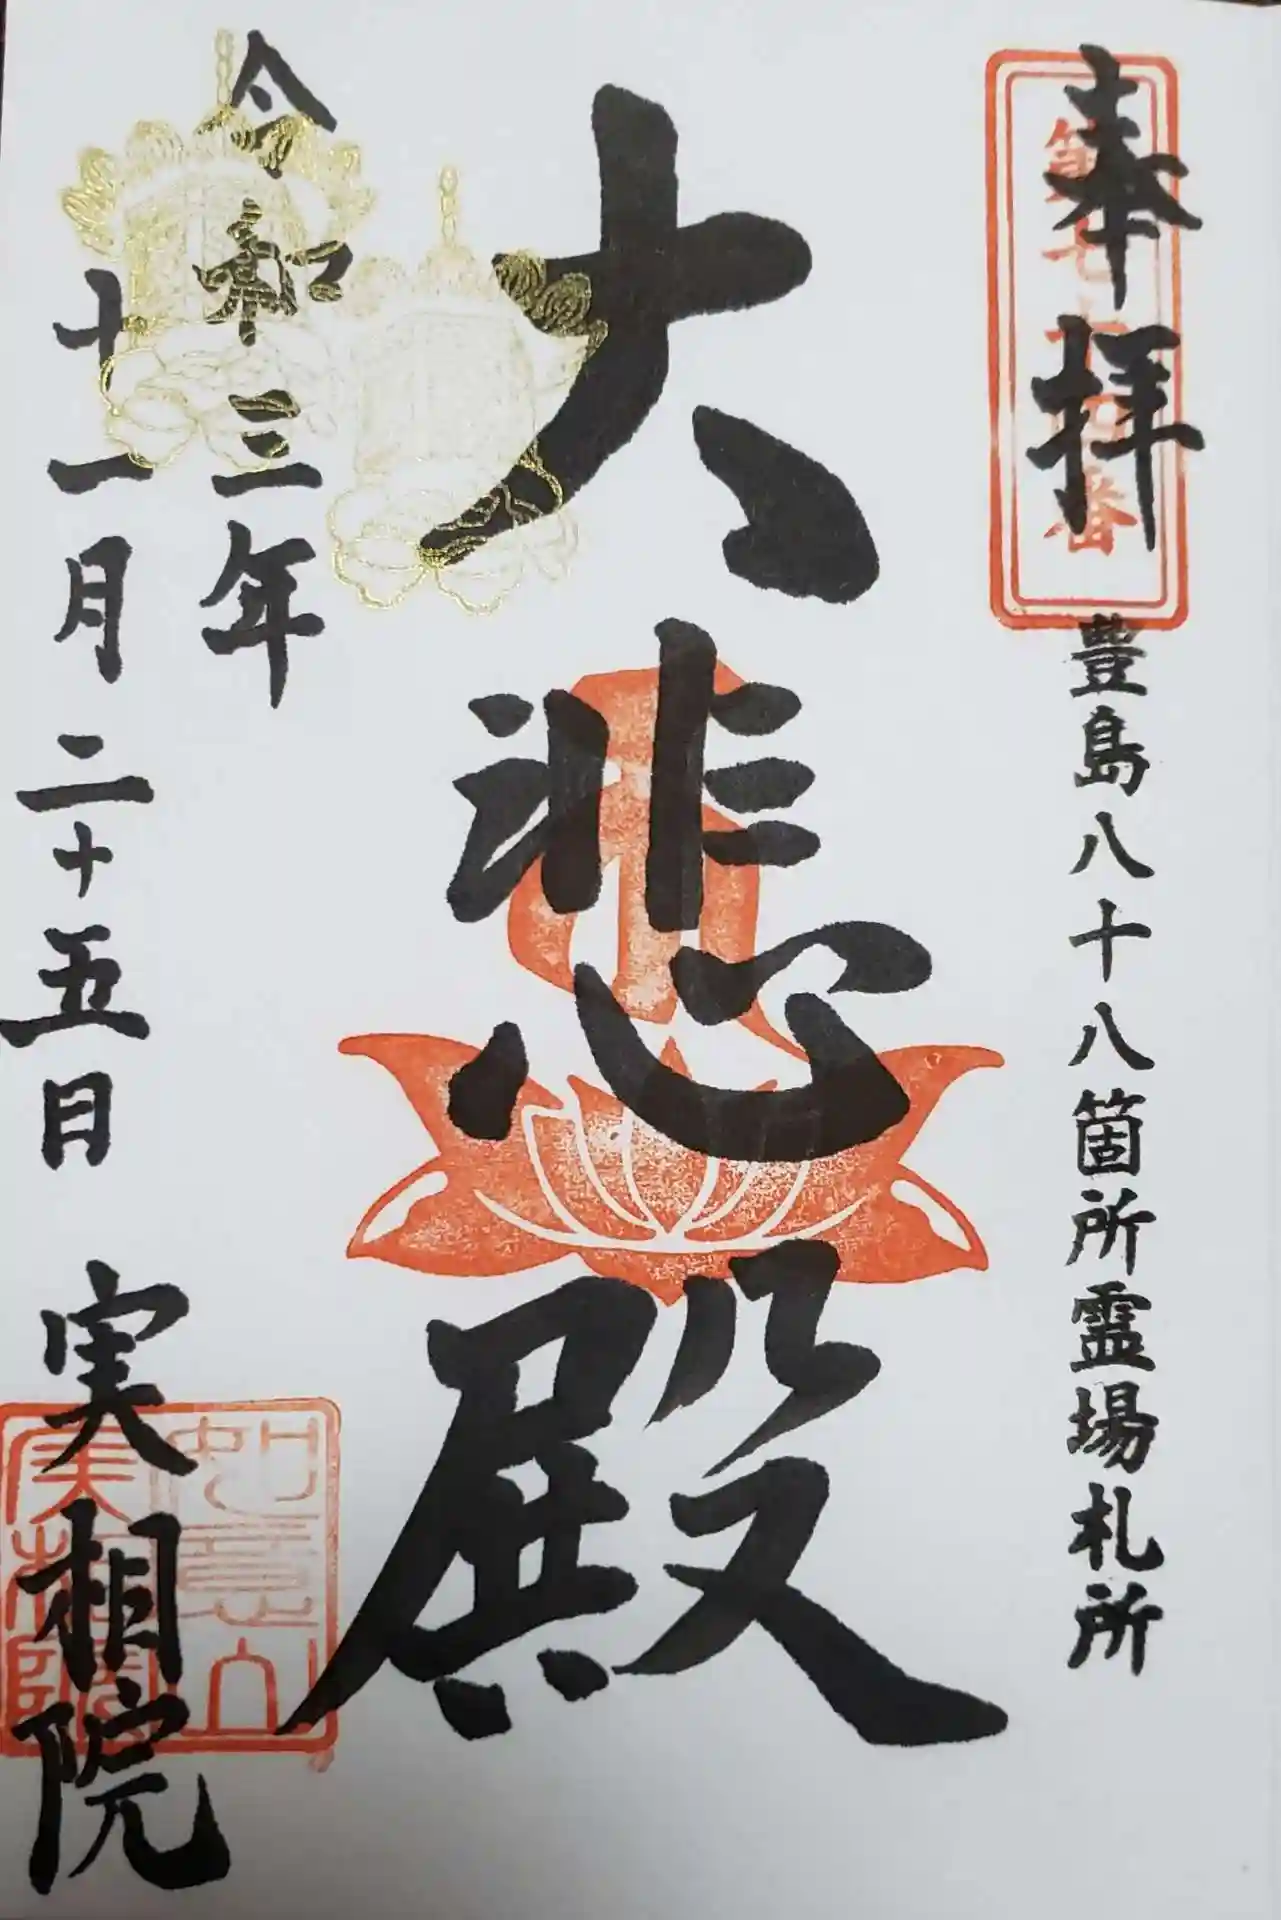 奉拝
豊島八十八箇所霊場札所
大悲殿
令和三年
十一月二十五日
実相院
如意山
実相院